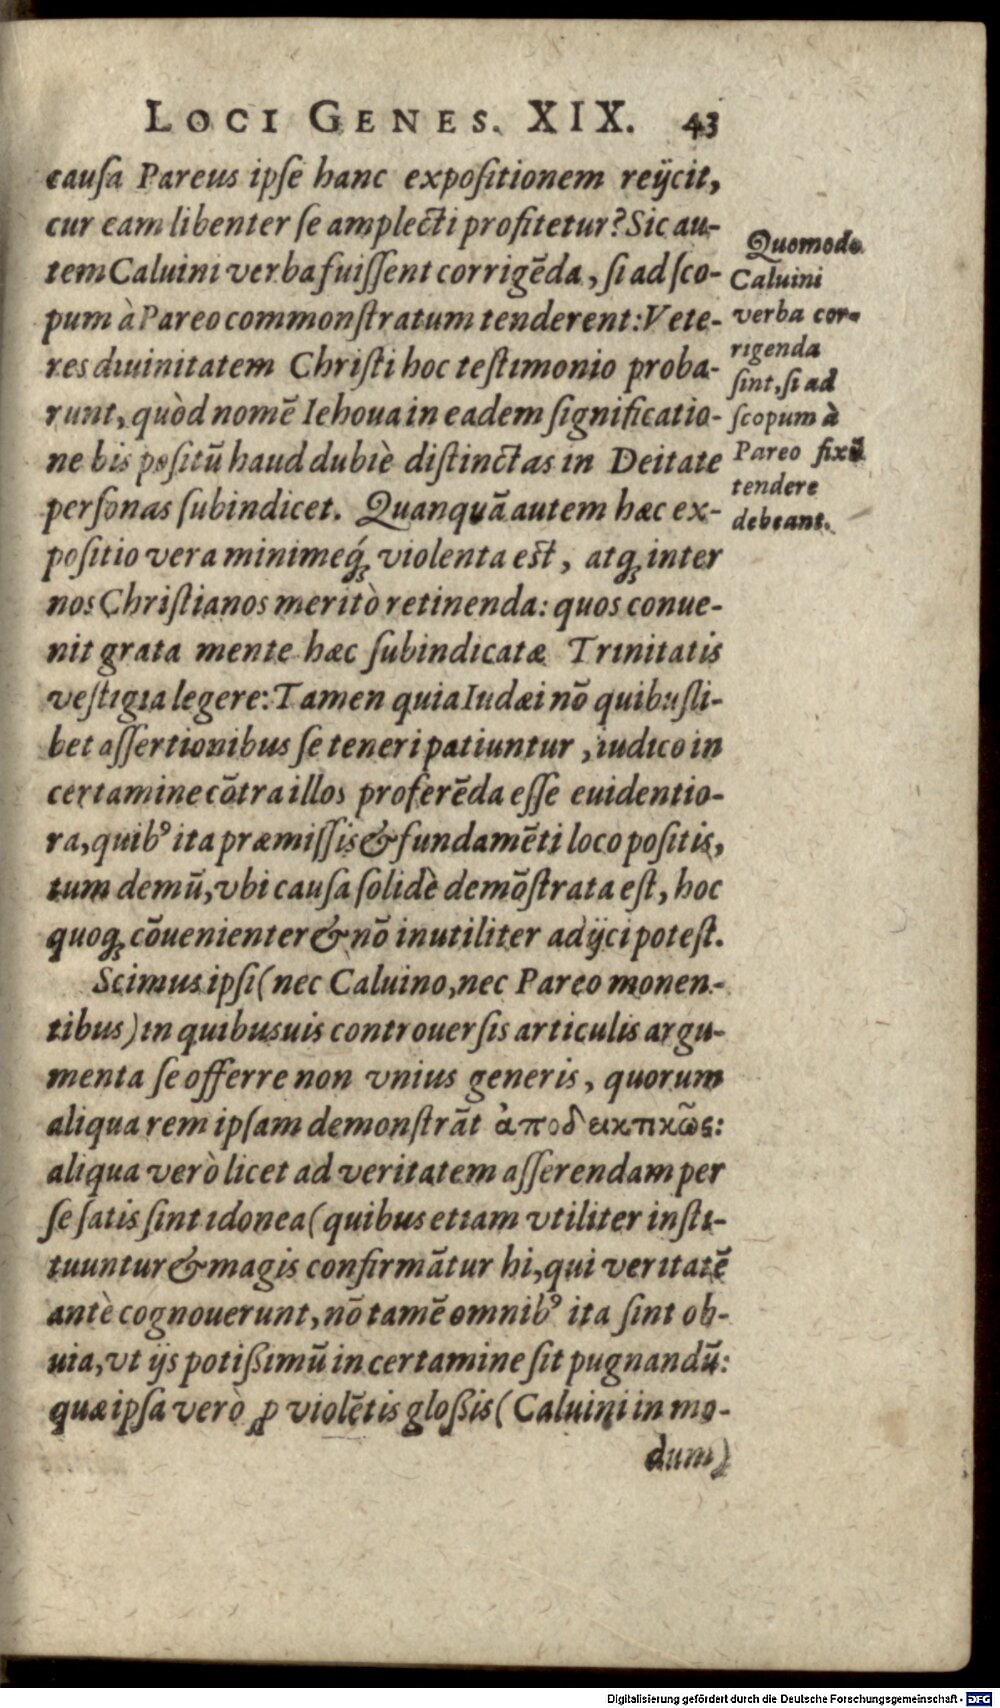 LOCI GENES. XIX. 43
cauſa Pareus ipſe hanc expoſitionem reijcit,
cur eam libenter ſe amplecti profitetur? Sic au-
tem Caluini verba fuiſſent corrigēda, ſi ad ſco-
pum à Pareo commonſtratum tenderent: Vete-
res diuinitatem Chriſti hoc teſtimonio proba-
runt, quòd nomē Iehoua in eadem ſignificatio-
ne bis poſitū haud dubiè diſtinctas in Deitate
perſonas ſubindicet. Quanquā autem hæc ex-
poſitio vera minimeq́ꝫ violenta eſt, atqꝫ inter
nos Chriſtianos meritò retinenda: quos conue-
nit grata mente hæc ſubindicatæ Trinitatis
veſtigia legere: Tamen quia Iudæi nō quibuſli-
bet aſſertionibus ſe teneri patiuntur, iudico in
certamine cōtra illos proferēda eſſe euidentio-
ra, quibꝰ ita præmiſſis & fundamēti loco poſitis,
tum demū, vbi cauſa ſolidè demōſtrata eſt, hoc
quoqꝫ cōuenienter & nō inutiliter adijci poteſt.
Scimus ipſi (nec Caluino, nec Pareo monen-
tibus) in quibusuis controuerſis articulis argu-
menta ſe offerre non vnius generis, quorum
aliqua rem ipſam demonſtrāt ἀποδεικτικῶς:
aliqua verò licet ad veritatem aſſerendam per
ſe ſatis ſint idonea (quibus etiam vtiliter inſti-
tuuntur & magis confirmātur hi, qui veritatē
antè cognouerunt, nō tamē omnibꝰ ita ſint ob-
uia, vt ijs potißimū in certamine ſit pugnandū:
quæ ipſa verò ꝑ violētis gloßis (Caluini in mo-
dum)
Quomodo
Caluini
verba cor-
rigenda
ſint, ſi ad
ſcopum à
Pareo fixū
tendere
debeant.
Digitalisierung gefördert durch die Deutsche Forschungsgemeinschaft - DFG